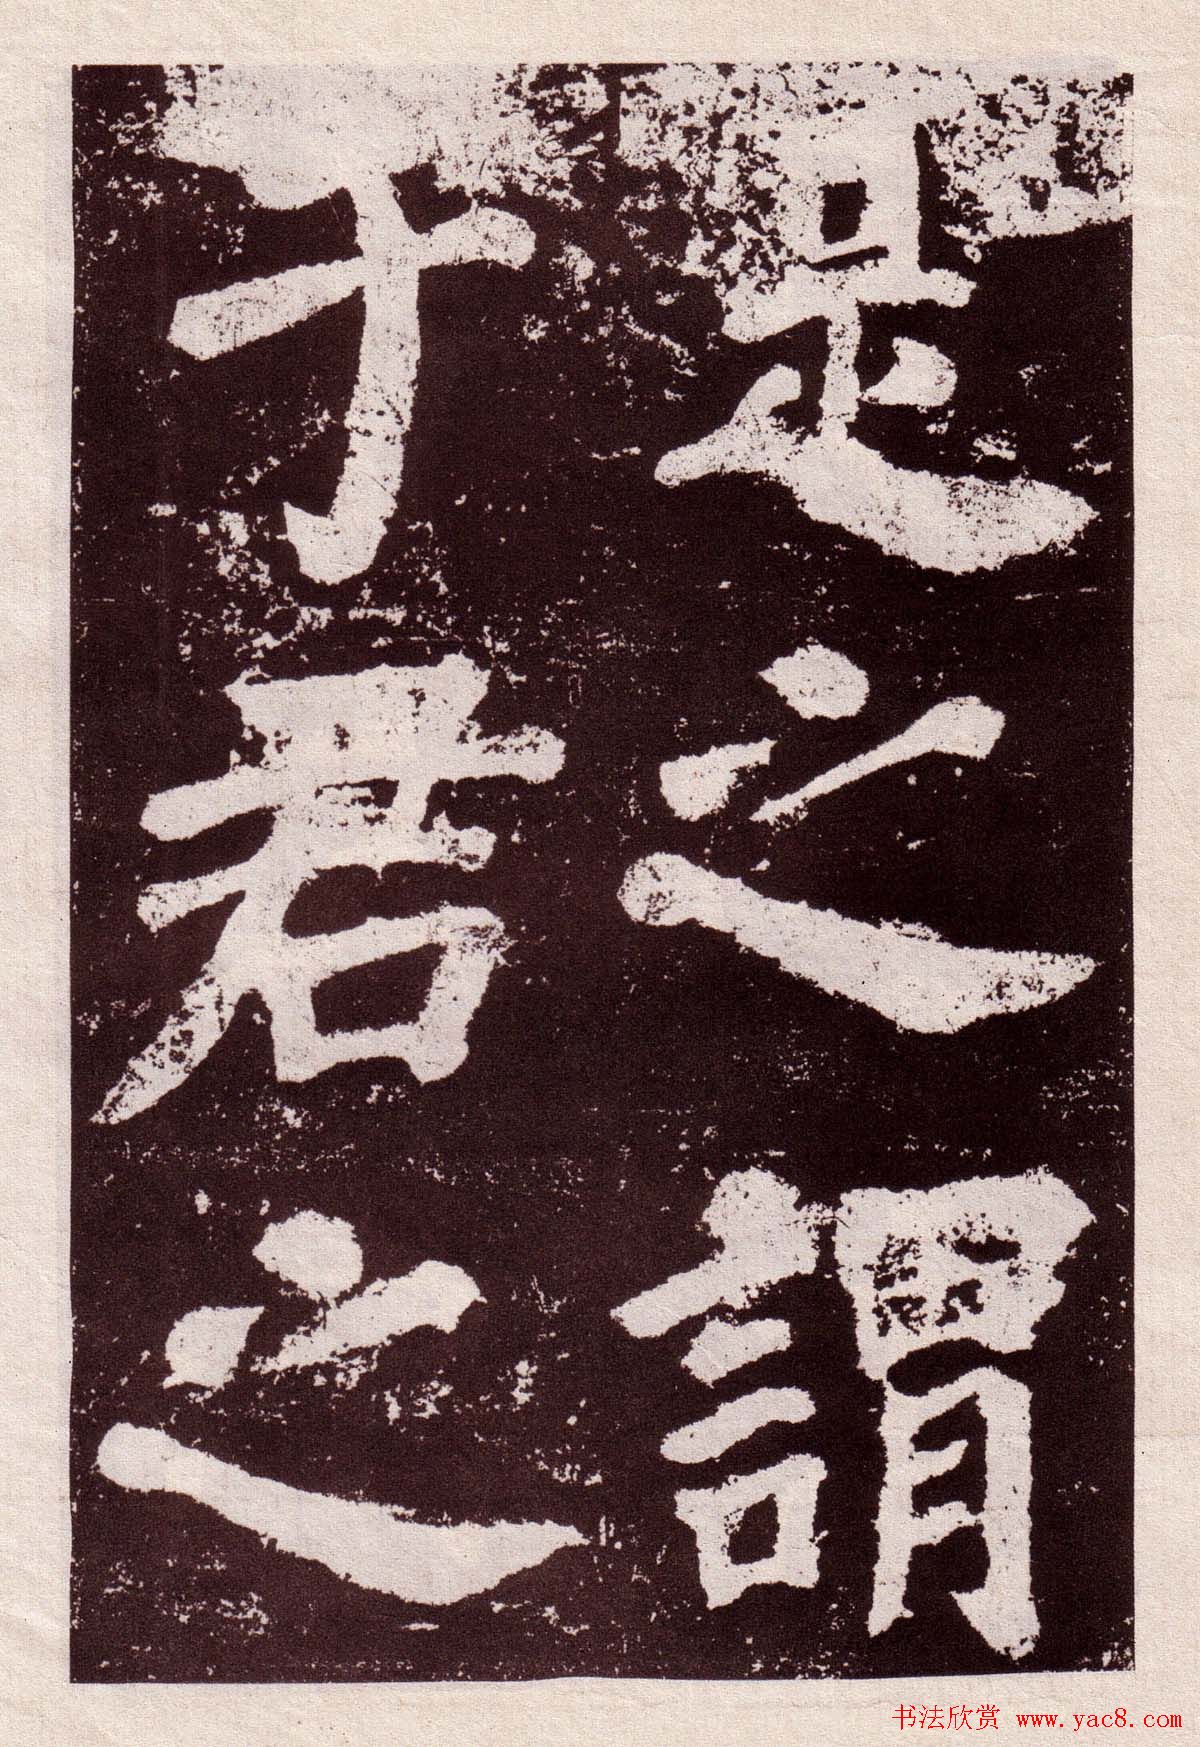 是之謂
于君之
书法欣赏 www.yac8.com